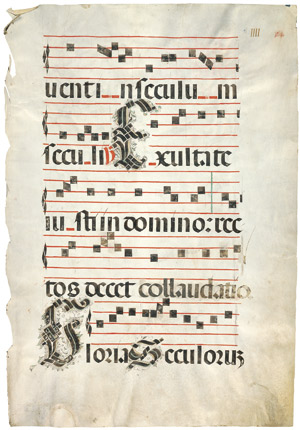 uenti_nseculu_m
seculi ℣ E_xultate
iu_sti in domino: rec
tos decet collaudatio
Gloria Seculorum